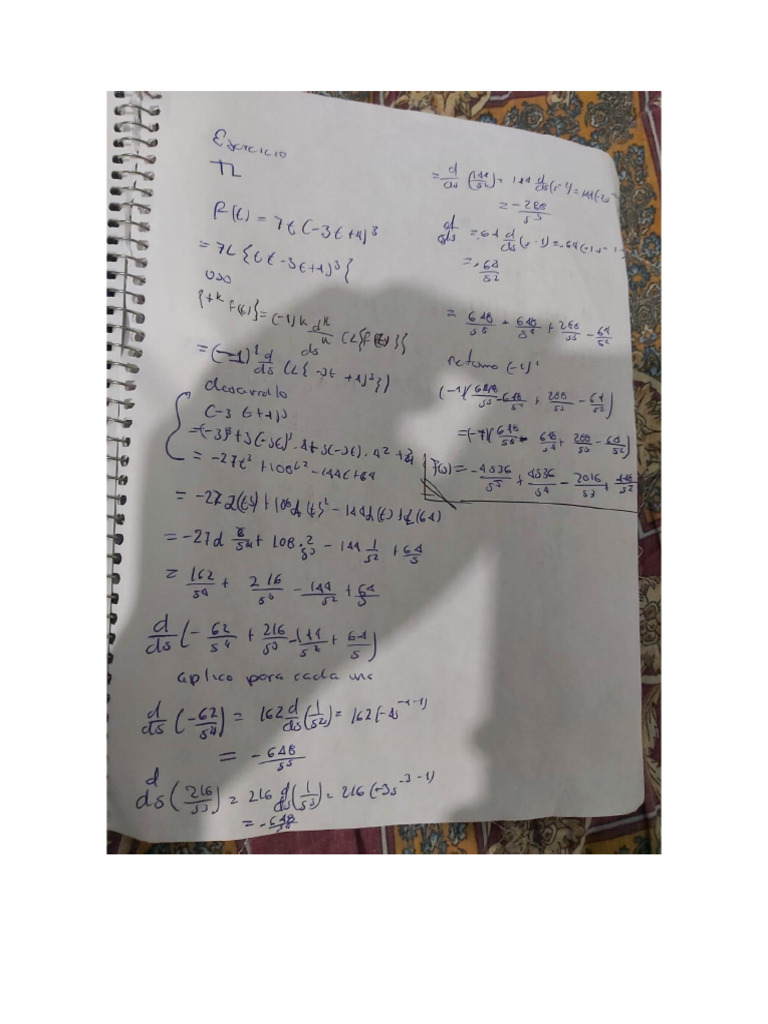 Ejercicio
TL
f(t) = 7t(-3t+4)^3
= 7L{t(t-3t+4)^3}
uso
{t^k f(t)} = (-1)^k d^k/ds^k (L{f(t)})
= (-1)^1 d/ds (L{-3t+4)^3})
desarrollo
(-3t+4)^3
= -27t^3 + 108t^2 - 144t + 64
= -27L(t^3) + 108L(t)^2 - 144L(t) + L(64)
= 162/s^4 + 216/s^3 - 144/s^2 + 64/s
d/ds (- 62/s^4 + 216/s^3 - 144/s^2 + 64/s)
aplico para cada una
d/ds (-62/s^4) = 162 d/ds (1/s^4) = 162(-4s^-4-1)
= -648/s^5
d/ds (216/s^3) = 216 d/ds (1/s^3) = 216(-3s^-3-1)
= -648/s^4
= d/ds (144/s^2) = 144 d/ds (s^-2) = 144(-2s
= -288/s^3
d/ds = 64 d/ds (s-1) = -64(-1s^-1-1
= -64/s^2
= 648/s^5 - 648/s^4 + 288/s^3 - 64/s^2
Retomo (-1)^1
(-1)(648/s^5 - 648/s^4 + 288/s^3 - 64/s^2)
= (-7)(648/s^5 - 648/s^4 + 288/s^3 - 64/s^2)
F(s) = -4536/s^5 + 4536/s^4 - 2016/s^3 + 448/s^2